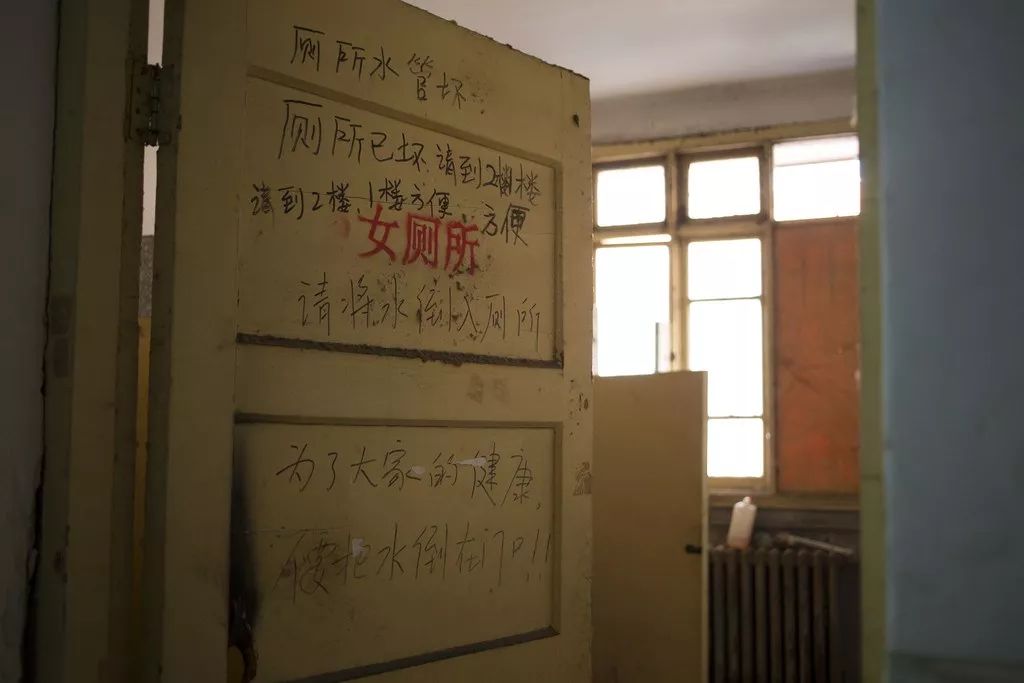 厕所水管坏
厕所已坏 请到2楼
请到2楼、1楼方便 方便
女厕所
请将水倒入厕所
为了大家的健康,
不要把水倒在门口!!